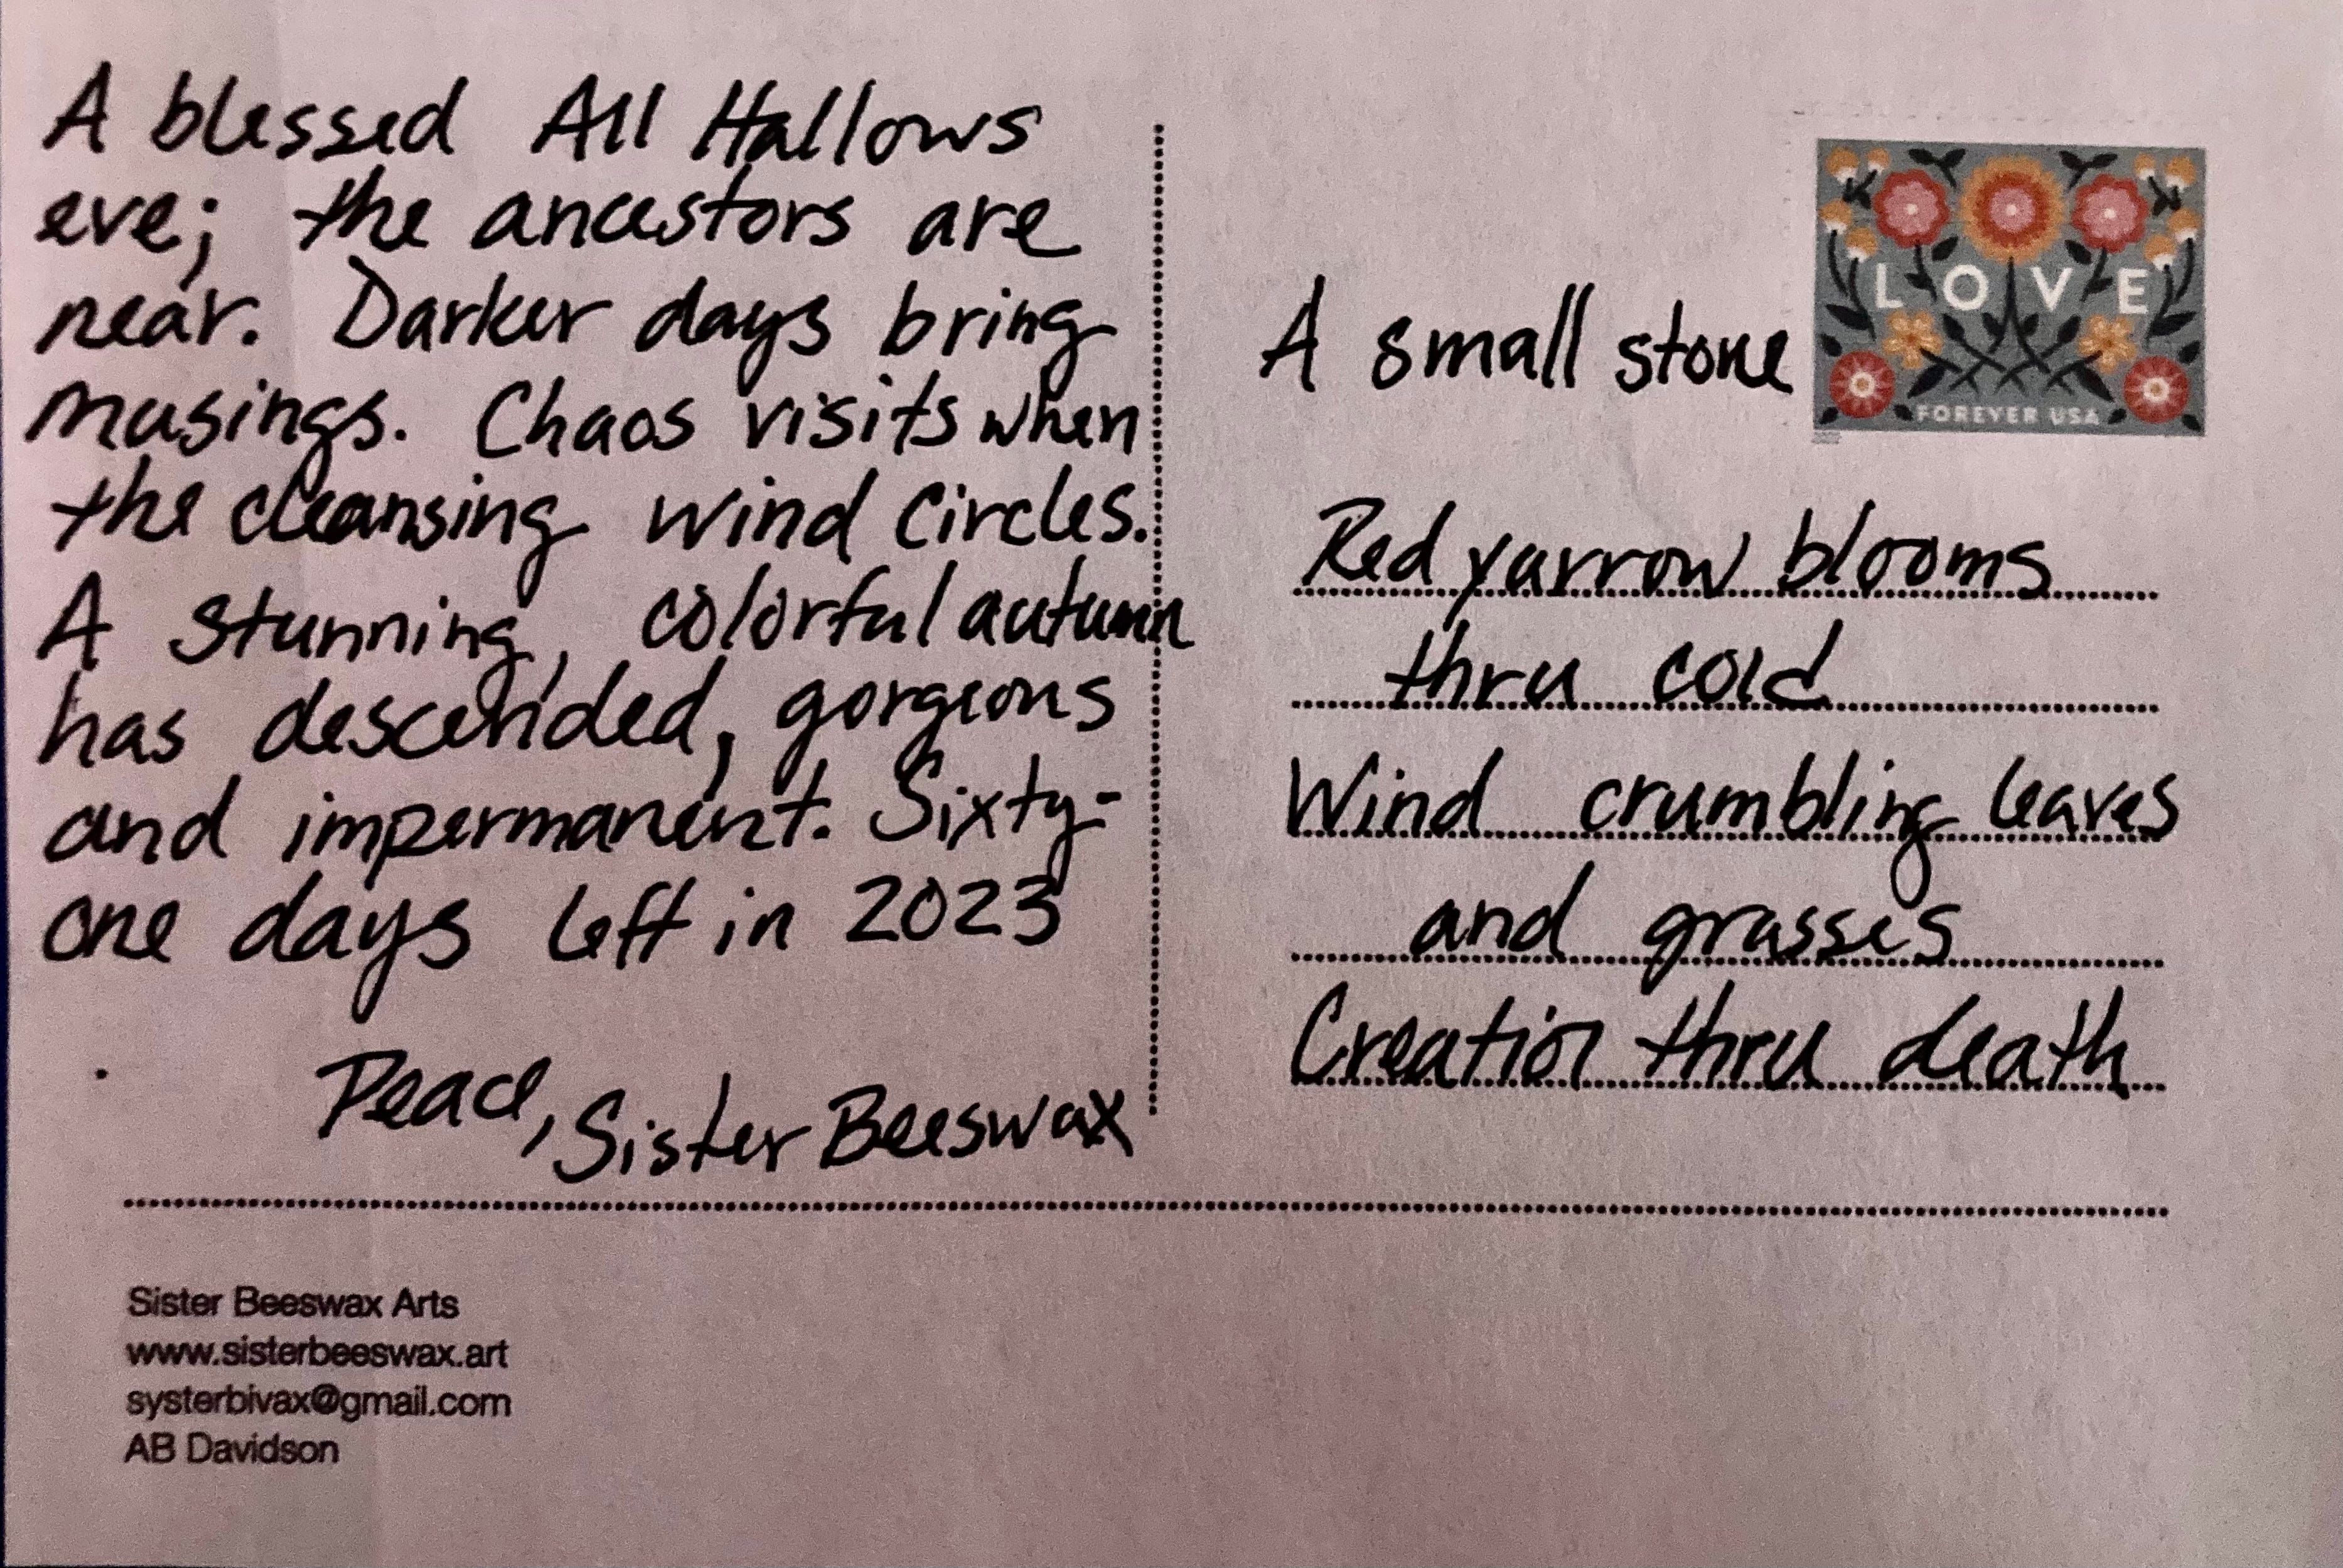 A blessed All Hallows
eve; the ancestors are
near. Darker days bring
musings. Chaos visits when
the cleansing wind circles.
A stunning, colorful autumn
has descended, gorgeous
and impermanent. Sixty-
one days left in 2023
Peace, Sister Beeswax
A small stone
LOVE
FOREVER USA
Red yarrow blooms
thru cold
Wind crumbling leaves
and grasses
Creation thru death
Sister Beeswax Arts
www.sisterbeeswax.art
systerbivax@gmail.com
AB Davidson